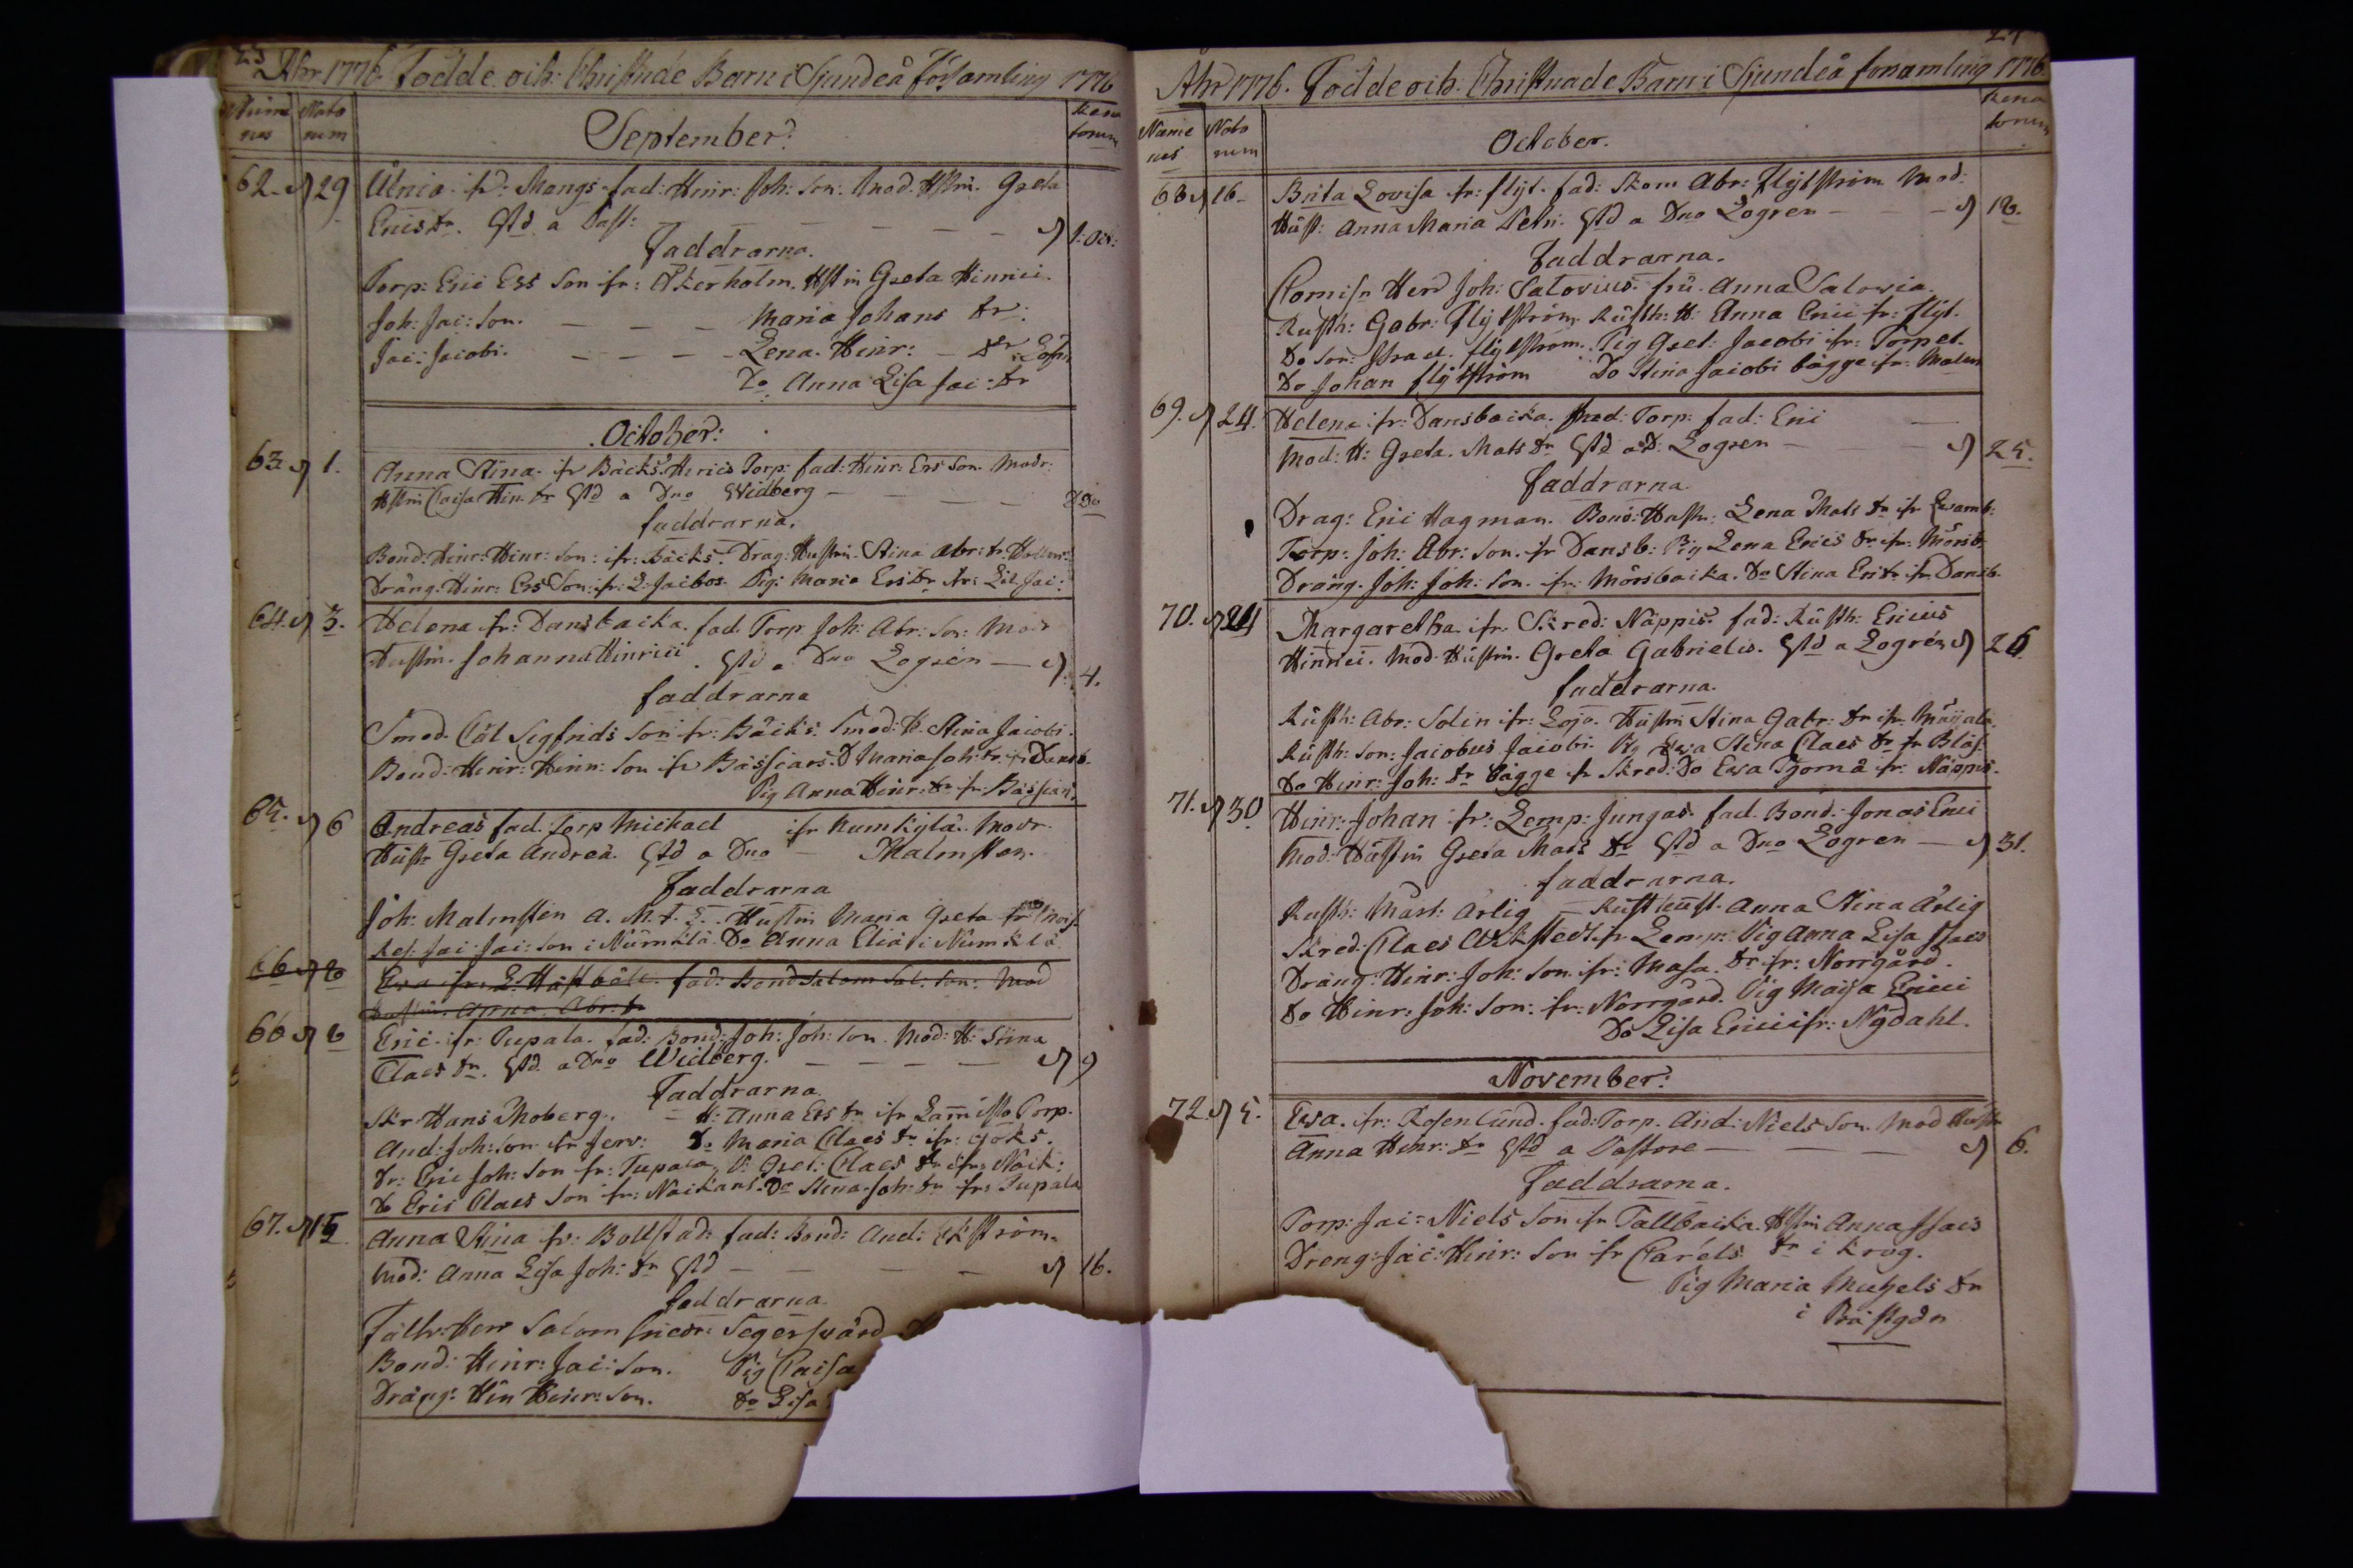 23
Åhr 1776 Födde och: Christnade Barn i Sjundeå Församling 1776
Nume
rus
Nato
rum
September:
Rena
torum
62. d 29 Ulrica fr: Mangs fad: Hinr: Joh: Son: Mod. Hstru. Greta
Ericsdr. Gstd a Past: — — — — d 1: Oct:
Faddrarna.
Torp: Eric Ers Son ifr: Åkerholm. Hst in Greta Hinrici.
Joh: Jac: Son. — — — Maria Johans dr:
Jac: Jacobi. — — — Lena Hinr: — dr
Do Anna Lisa Jac: dr
October:
63. d 1. Anna Stina ifr Bäcks Hirics Torp: fad: Hinr: Ers Son. Modr:
Hstru Caisa Hin. dr Gstd a Dno Widberg — — — —
faddrarna.
Bond: Hinr: Hinr: Son: ifr: Bäcks. Drag: Hustru. Stina Abr: dr
Dräng: Hinr: Ers Son: ifr: L: Jacbos Pig: Maria Ersdr fr: Lil Jac:
64. d 3. Helena fr: Dansbacka. fad. Torp Joh: Abr: Son: Mod
Hustru. Johanna Hinrici. Gstd a Dno Logren — d 4.
faddrarna
Smed. Carl Sigfrids Son fr: Bäcks. Smed: H. Stina Jacobi.
Bond: Hinr: Hinr: Son ifr Bässiars. D Maria Joh: dr. ifr Dansb.
Pig Anna Hinr: dr fr: Bässiars
65. d 6 Andreas fad: Torp Michael ifr Numkylä. Modr.
Hustr Greta Andreä. Gstd a Dno — Malmsten.
Faddrarna
Joh: Malmsten A. M. Hustru Maria Greta
Jac: Jac: Son i Numklä Do Anna i Numklä.
66 d 6 Ewa ifr: fad: Bond Salom Sal: Son: Mod
Hustru. Anna Abr: dr
66 d 6 Eric ifr: Pupala. fad: Bond: Joh: Joh: Son. Mod: H: Stina
Claes dr. Gstd a Dno Widberg. — — — — d 9
Faddrarna
Skr Hans Moberg. — H: Anna Ers dr ifr Torp.
And: Joh: Son ifr Jerv: D: Maria Claes dr ifr: Göks.
Dr: Eric Joh: Son fr: Pupala, D: Gret: Claes dr ifr: Näck:
Do Eric Claes Son fr: Näckans. Do Stina Joh: dr fr: Pupala
67. d 15 Anna Stina fr: Bollstad: fad: Bond: And: Ekström.
Mod: Anna Lisa Joh: dr Gstd — — — — d 16.
faddrarna.
Fältw: Herr Salom Segerswärd
Bond: Hinr: Jac: Son. Pig Caisa
Dräng: Hin Hinr: Son. Do Lisa
Åhr 1776. Födde och: Christnade Barn i Sjundeå församling 1776.
Nume
rus
Nato
rum
October.
Rena
torum
68 d 16 Brita Lovisa fr: flyt. fad: Skom Abr: Flytström Mod:
Hust: Anna Maria Petri. Gstd a Dno Logren — — d 18.
Faddrarna.
Comisr Herr Joh: Salovius. fru. Anna Salovia.
Rusth: Gabr: Flytström. Rusth: H: Anna Erici fr: flyt.
Do Son: Israel flytström. Pig Gret: Jacobi ifr: Torpet.
Do Johan flytström Do Stina Jacobi bägge ifr: Malm
69. d 24. Helena ifr: Dansbacka. Torp: fad: Eric —
Mod: H: Greta. Mats dr Gstd a D: Logren — d 25.
Faddrarna
Drag: Eric Hagman. Bond: Hustr: Lena Mats dr ifr
Torp: Joh: Abr: Son. ifr Dansb: Pig Lena Erics dr ifr: Mörsb.
Dräng. Joh: Joh: Son. ifr: Mörsbacka. Do Stina Ersdr ifr Dansb.
70. d 24 Margaretha ifr. Skred: Näppis. fad: Rusth: Ericus
Hinrici. Mod Hustru. Greta Gabrielis. Gstd a Logren d 26.
faddrarna.
Rusth: Abr: Solin ifr: Lojo. Hustru Stina Gabr: dr ifr:
Rusth: Son: Jacobus Jacobi. Pig Stina Claes dr fr Bläs.
Do Hinr: Joh: dr bägge fr Skred: Do Ewa ifr: Näppis.
71. d 30 Hinr: Johan fr: Lemp: Jungars. fad. Bond: Jonas Erici
Mod: Hustru Greta Mats dr Gstd a Dno Logren — d 31.
faddrarna.
Rusth: Mårt: Ärlig — Rusthust. Anna Stina Ärlig
Skred: Claes Ekstedt fr Lemp: Pig Anna Lisa Isacs
Dräng: Hinr: Joh: Son. ifr: Masa. dr ifr: Norrgård.
Do Hinr: Joh: Son: fr: Norrgård. Pig Maija Erici
Do Lisa Erici ifr: Nydahl.
November:
72. d 5. Ewa. ifr: Rosenlund. fad: Torp. And: Niels Son. Mod Hustr
Anna Hinr: dr Gstd a Pastore — — — d 6.
Faddrarna.
Torp: Jac: Niels Son ifr Tallbacka. Hstru Anna Isacs
Dreng: Jac: Hinr: Son ifr Carels dr i Krog.
Pig Maria Michels dr
i Prästgdn